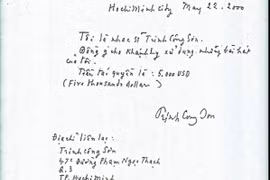 HochiMinh City May 22, 2000
Tôi là nhạc sĩ Trịnh Công Sơn.
Đồng ý cho Khánh Ly sử dụng những bài hát
của tôi.
Tiền tác quyền là : 5.000 USD
(Five thousands dollar)
Trịnh Công Sơn
Địa chỉ liên lạc :
Trịnh Công Sơn
47c Đường Phạm Ngọc Thạch
Q.3
TP. HochiMinh